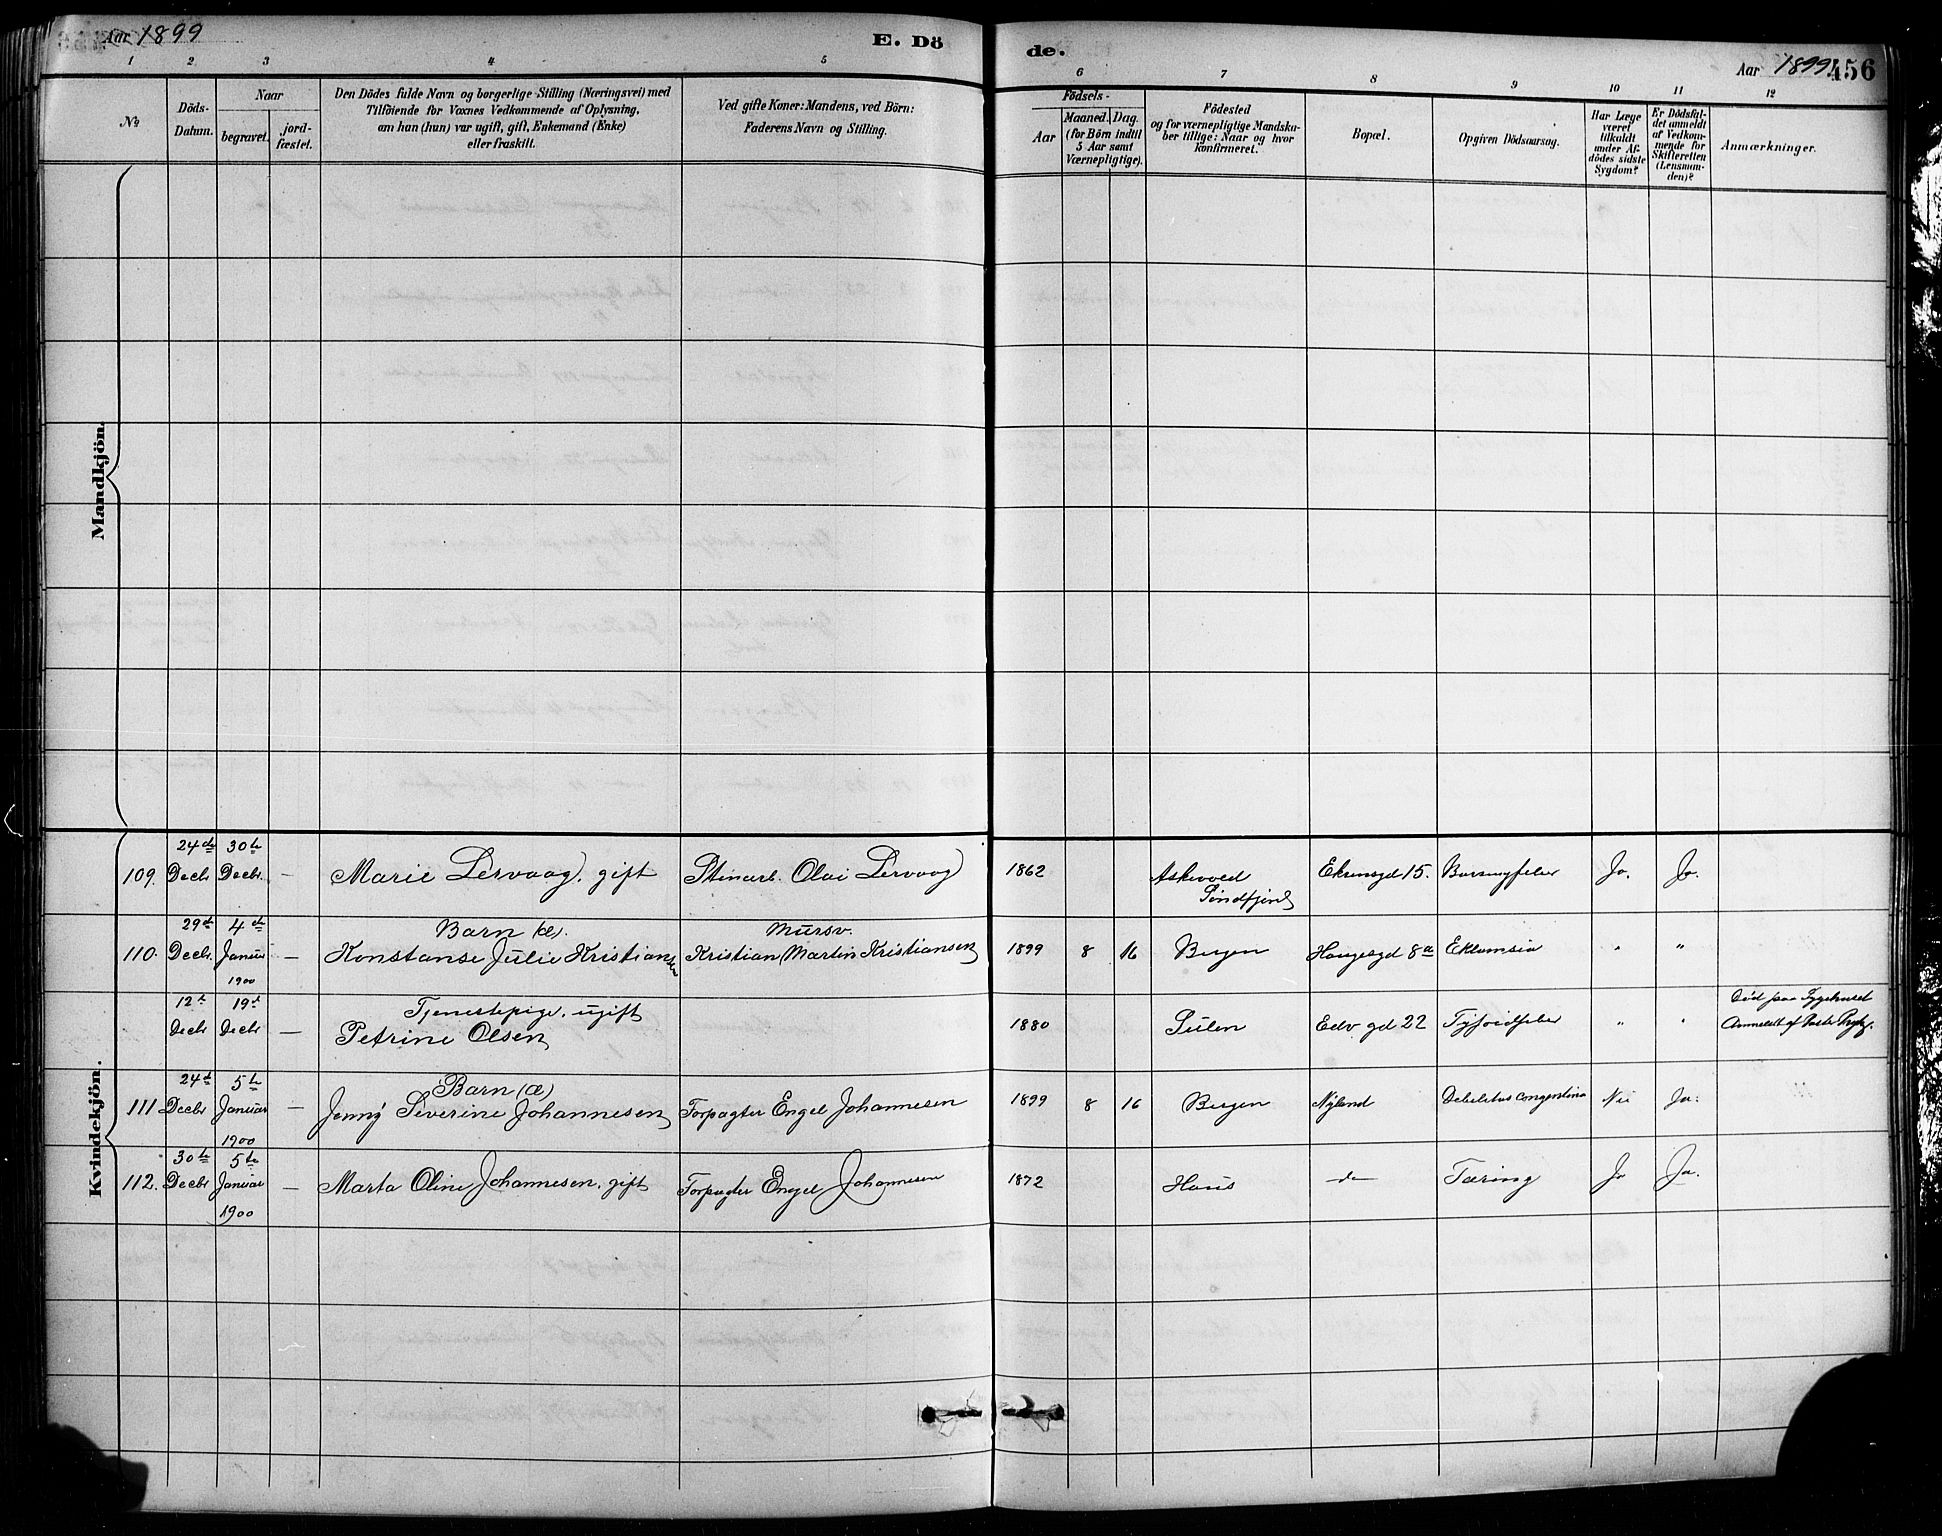 Aar 1899
E. Dö
de.
Aar 1899
456
1 2 3 4 5 6 7 8 9 10 11 12
No
Döds-
Datum.
Naar
begravet.
jord-
fæstet.
Den Dödes fulde Navn og borgerlige Stilling (Næringsvei) med
Tilföiende for Voxnes Vedkommende af Oplysning,
om han (hun) var ugift, gift, Enkemand (Enke)
eller fraskilt.
Ved gifte Koner: Mandens, ved Börn:
Faderens Navn og Stilling.
Födsels-
Aar
Maaned.
Dag.
(for Börn indtil
5 Aar samt
Værnepligtige).
Födested
og for værnepligtige Mandska-
ber tillige: Naar og hvor
konfirmeret.
Bopæl.
Opgiven Dödsaarsag.
Har Læge
været
tilkaldt
under Af-
dödes sidste
Sygdom?
Er Dödsfal-
det anmeldt
af Vedkom-
mende for
Skifteretten
(Lensman-
den)?
Anmærkninger.
Mandkjön.
Kvindekjön.
109. 24de Decbr. 30te Decbr. — Marie Lervaag, gift Olai Lervaag 1862 Askevold Söndfjord 15. Barselfeber Ja. Ja.
110. 29de Decbr. 4de Januar 1900 — Barn (æ). Konstanse Julie Kristiansen Mursv. Kristian Martin Kristiansen 1899 8 16 Bergen Haugesgd 8a Eklamsia " "
12te Decbr 19de Decbr — Tjenestepige, ugift Petrine Olsen 1880 Sulen Edv gd 22 Tyfoidfeber " " Död paa Sygehuset
Anmeldt af
111 24de Decbr 5te Januar 1900 — Barn (æ) Jenny Severine Johannesen Forpagter Engel Johannesen 1899 8 16 Bergen Nyland Debilitas congenitina Nei Ja.
112. 30te Decbr 5te Januar 1900 — Marta Oline Johannesen, gift Forpagter Engel Johannesen 1872 Haus do Tæring Ja Ja.